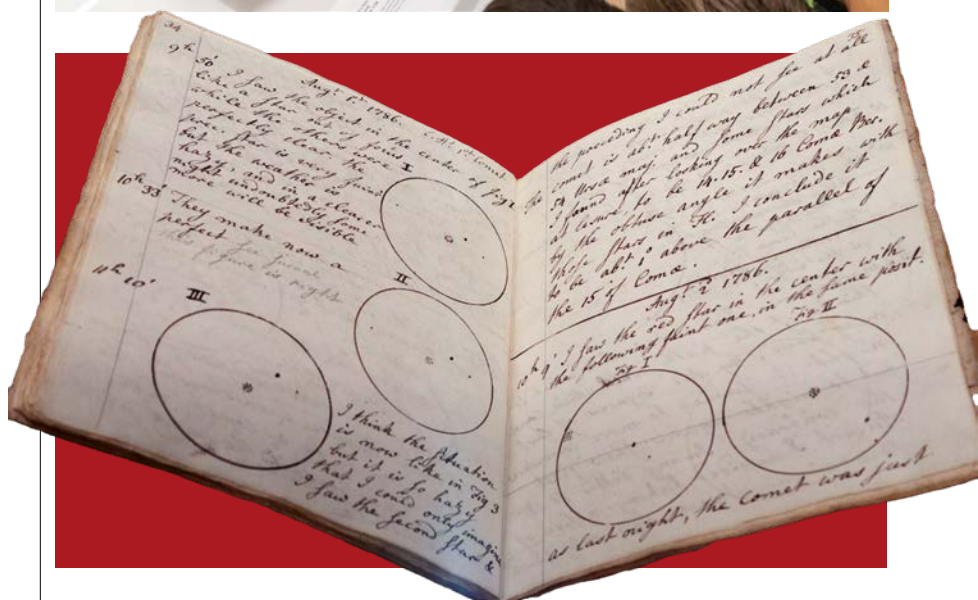 34
Augt 1st 1786. C.H. 1st Comet
9h 50' I saw the object in the center of fig I
like a star out of focus,
while the others were
perfectly clear. The
prec. star is very faint
but the weather is
hazy, and in a clearer
night undoubtedly some
more will be visible
10h 33' They make now a
perfect
figure is right
I
II
11h 10'
III
I think the situation
is now like in Fig 3
but it is so hazy
that I could only imagine
I saw the second star &
35
the preceding I could not see at all
The comet is abt half way between 53 &
54 Ursæ maj: and some stars which
I found after looking over the map
at leisure, to be 14. 15. & 16 Comæ Ber.
by the obtuse angle it makes with
those stars in Fl. I conclude it
to be abt 1° above the parallel of
the 15 of Comæ.
Augt 2 1786.
10h 9' I saw the red star in the center with
the following faint one, in the same posit.
Fig I
Fig II
as last night, the Comet was just